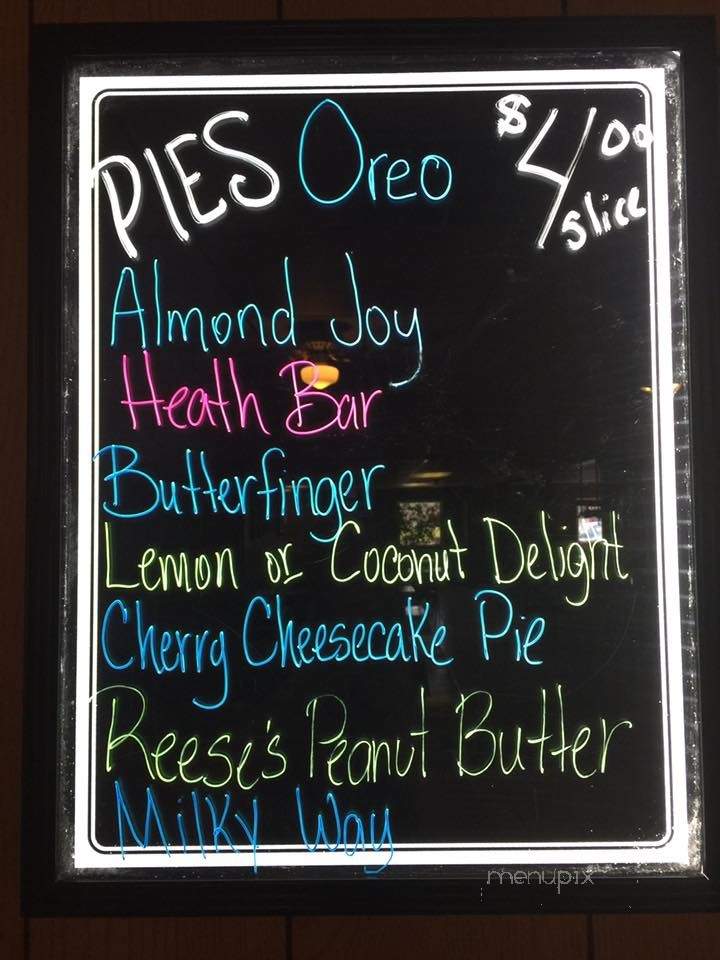 PIES Oreo $4.00
slice
Almond Joy
Heath Bar
Butterfinger
Lemon or Coconut Delight
Cherry Cheesecake Pie
Reese's Peanut Butter
Milky Way
menupix